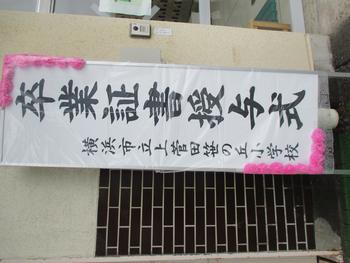 卒業証書授与式
横浜市立上菅田笹の丘小学校